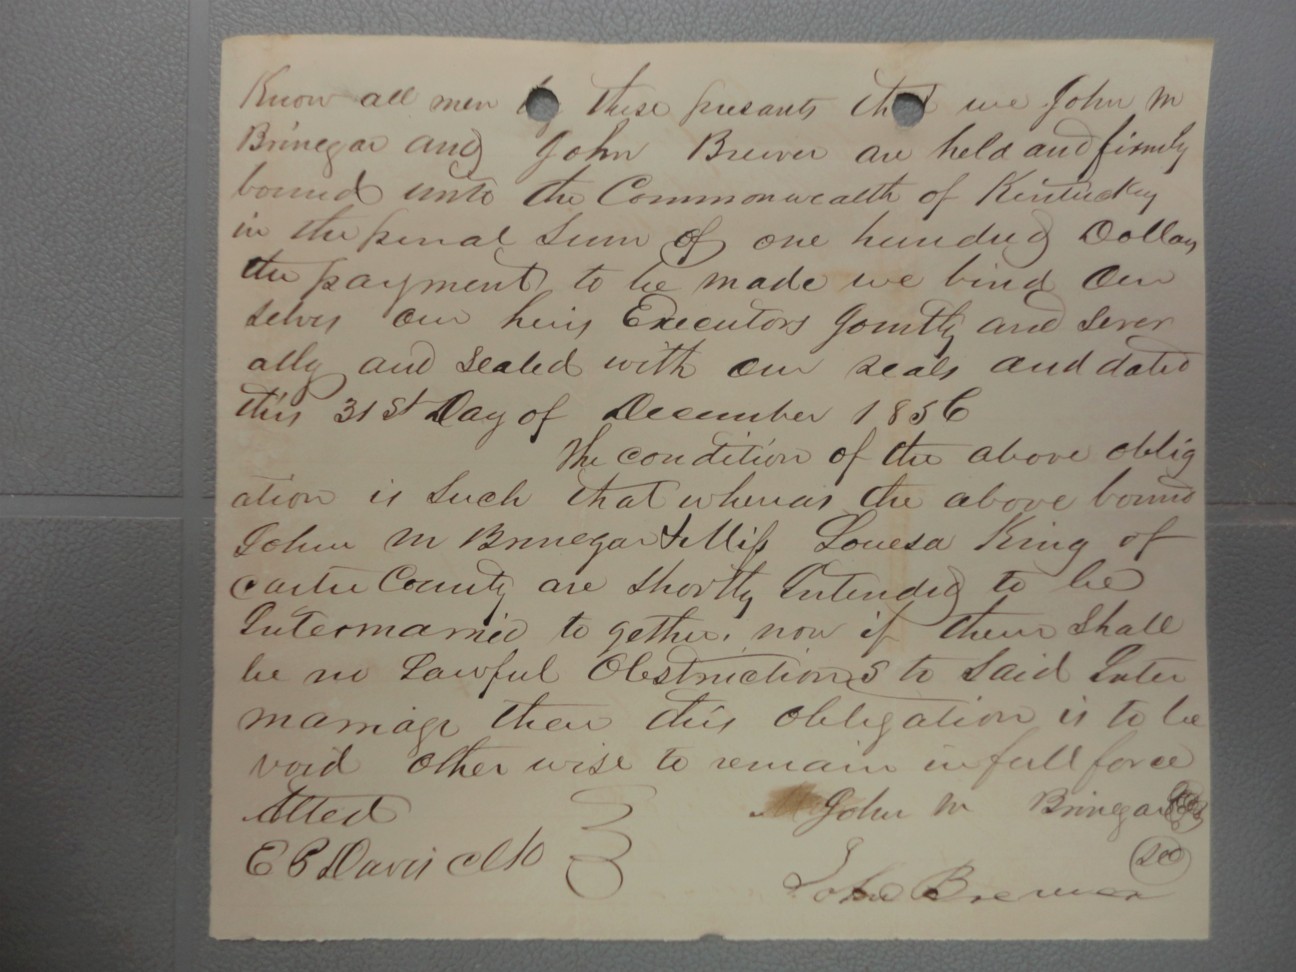 Know all men by these presants that we John M
Brinegar and John Brewer are held and firmly
bound unto the Commonwealth of Kentuckey
in the penal Sum of one hundred Dollars
the payment to be made we bind our
selves our heirs Executors Jointly and sever
ally and sealed with our seals and dated
this 31st Day of December 1856
The condition of the above oblig
ation is such that whereas the above bound
John M Brinegar & Miss Louesa King of
Carter County are shortly Intended to be
Intermarried to gether, now if there shall
be no Lawful Obstructions to said Inter
marriage then this obligation is to be
void other wise to remain in full force
Atted
John M Brinegar
E B Davis Clk
John Brewer